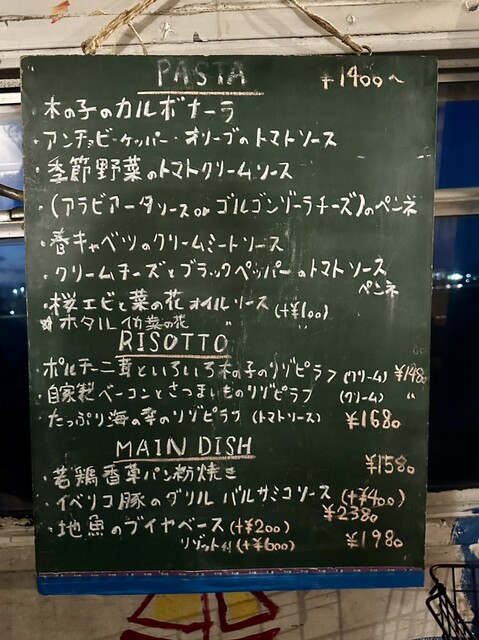 PASTA ¥1400～
・木の子のカルボナーラ
・アンチョビ・ケッパー・オリーブのトマトソース
・季節野菜のトマトクリームソース
・(アラビアータソース or ゴルゴンゾーラチーズ)のペンネ
・春キャベツのクリームミートソース
・クリームチーズとブラックペッパーのトマトソース
ペンネ
・桜エビと菜の花オイルソース (+¥100)
ホタルイカ 菜の花 〃
RISOTTO
・ポルチーニ茸といろいろ木の子のリゾピラフ (クリーム) ¥1480
・自家製ベーコンとさつまいものリゾピラフ (クリーム) 〃
・たっぷり海の幸のリゾピラフ (トマトソース) ¥1680
MAIN DISH
・若鶏香草パン粉焼き ¥1580
・イベリコ豚のグリル バルサミコソース (+¥400)
¥2380
・地魚のブイヤベース (+¥200)
リゾット付 (+¥600) ¥1980